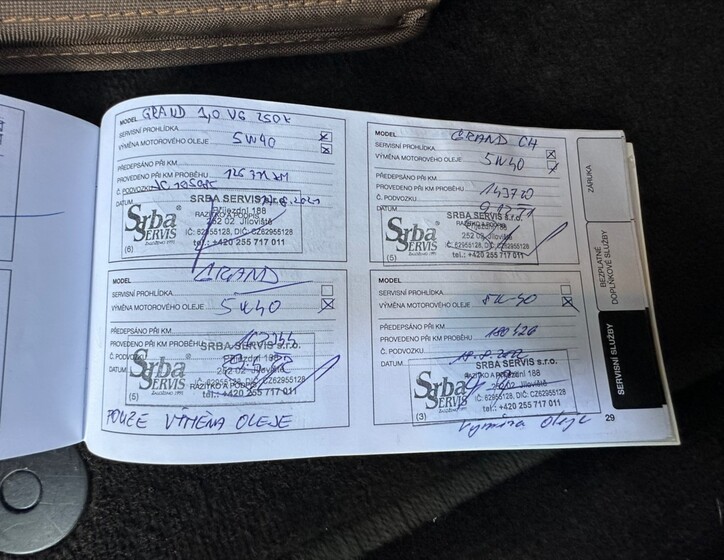 MODEL GRAND 1,0 VG 250k
SERVISNÍ PROHLÍDKA
VÝMĚNA MOTOROVÉHO OLEJE 5W40
PŘEDEPSÁNO PŘI KM
PROVEDENO PŘI KM PROBĚHU
Č. PODVOZKU
DATUM
SRBA SERVIS s.r.o.
Příjezdní 188
RAZÍTKO A PODPIS
252 02 Jíloviště
IČ: 62955128, DIČ: CZ62955128
tel.: +420 255 717 011
Srba SERVIS
(6)
MODEL GRAND CH
SERVISNÍ PROHLÍDKA
VÝMĚNA MOTOROVÉHO OLEJE 5W40
PŘEDEPSÁNO PŘI KM
PROVEDENO PŘI KM PROBĚHU 143720
Č. PODVOZKU
DATUM
SRBA SERVIS s.r.o.
252 02 Jíloviště
IČ: 62955128, DIČ: CZ62955128
tel.: +420 255 717 011
Srba SERVIS
(5)
MODEL GRAND
SERVISNÍ PROHLÍDKA
VÝMĚNA MOTOROVÉHO OLEJE 5W40
PŘEDEPSÁNO PŘI KM
PROVEDENO PŘI KM PROBĚHU
Č. PODVOZKU
DATUM
SRBA SERVIS s.r.o.
Příjezdní 188
252 02 Jíloviště
RAZÍTKO A PODPIS
IČ: 62955128, DIČ: CZ62955128
tel.: +420 255 717 011
Srba SERVIS
(5)
POUZE VÝMĚNA OLEJE
MODEL
SERVISNÍ PROHLÍDKA
VÝMĚNA MOTOROVÉHO OLEJE
PŘEDEPSÁNO PŘI KM
PROVEDENO PŘI KM PROBĚHU 180326
Č. PODVOZKU
DATUM
SRBA SERVIS s.r.o.
Příjezdní 188
RAZÍTKO A PODPIS
252 02 Jíloviště
IČ: 62955128, DIČ: CZ62955128
tel.: +420 255 717 011
Srba SERVIS
(3)
Výměna oleje
29
ZÁRUKA
BEZPLATNÉ
DOPLŇKOVÉ SLUŽBY
SERVISNÍ SLUŽBY